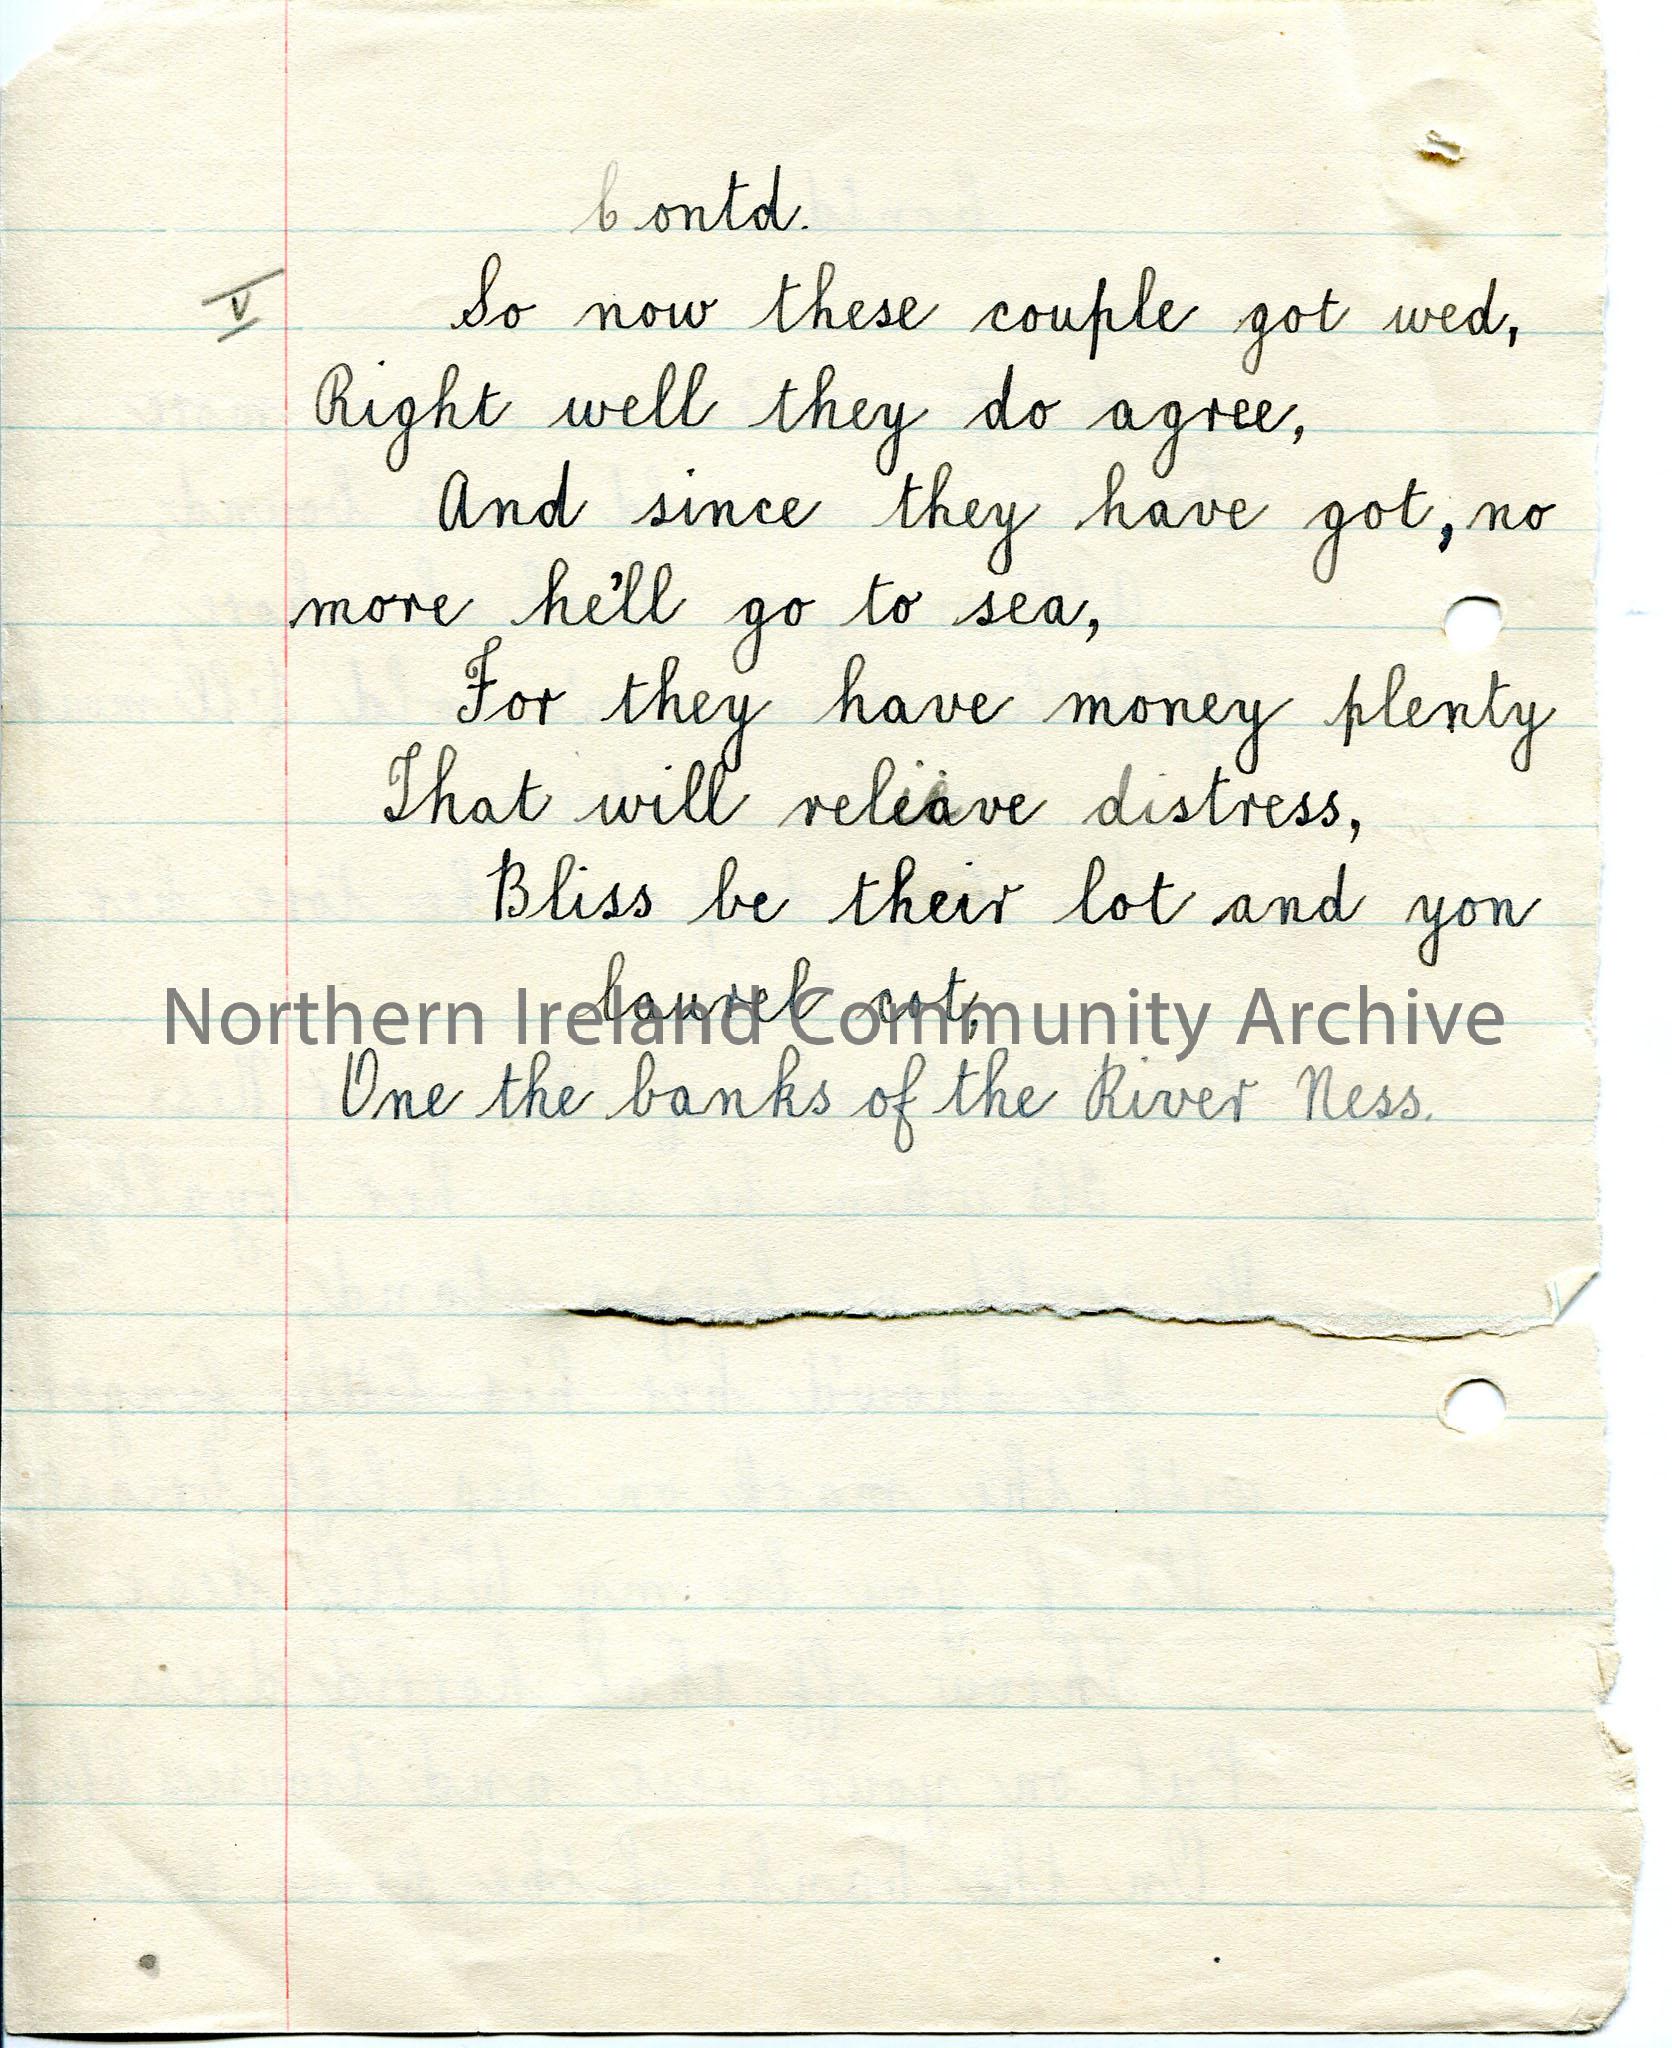 Contd.
V So now these couple got wed,
Right well they do agree,
And since they have got, no
more he'll go to sea,
For they have money plenty
That will releiave distress,
Bliss be their lot and yon
laurel cot,
Northern Ireland Community Archive
One the banks of the River Ness.